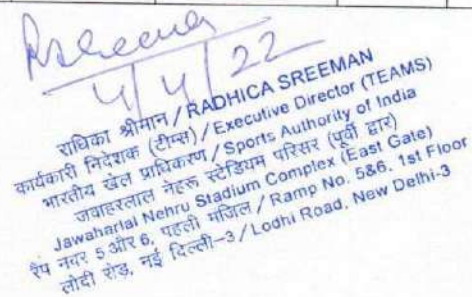 Rsreeman
4/4/22
राधिका श्रीमान / RADHICA SREEMAN
कार्यकारी निदेशक (टीम्स) / Executive Director (TEAMS)
भारतीय खेल प्राधिकरण / Sports Authority of India
जवाहरलाल नेहरू स्टेडियम परिसर (पूर्वी द्वार)
Jawaharlal Nehru Stadium Complex (East Gate)
रैंप नंवर 5 और 6, पहली मंजिल / Ramp No. 5&6, 1st Floor
लोदी रोड़, नई दिल्ली-3 / Lodhi Road, New Delhi-3